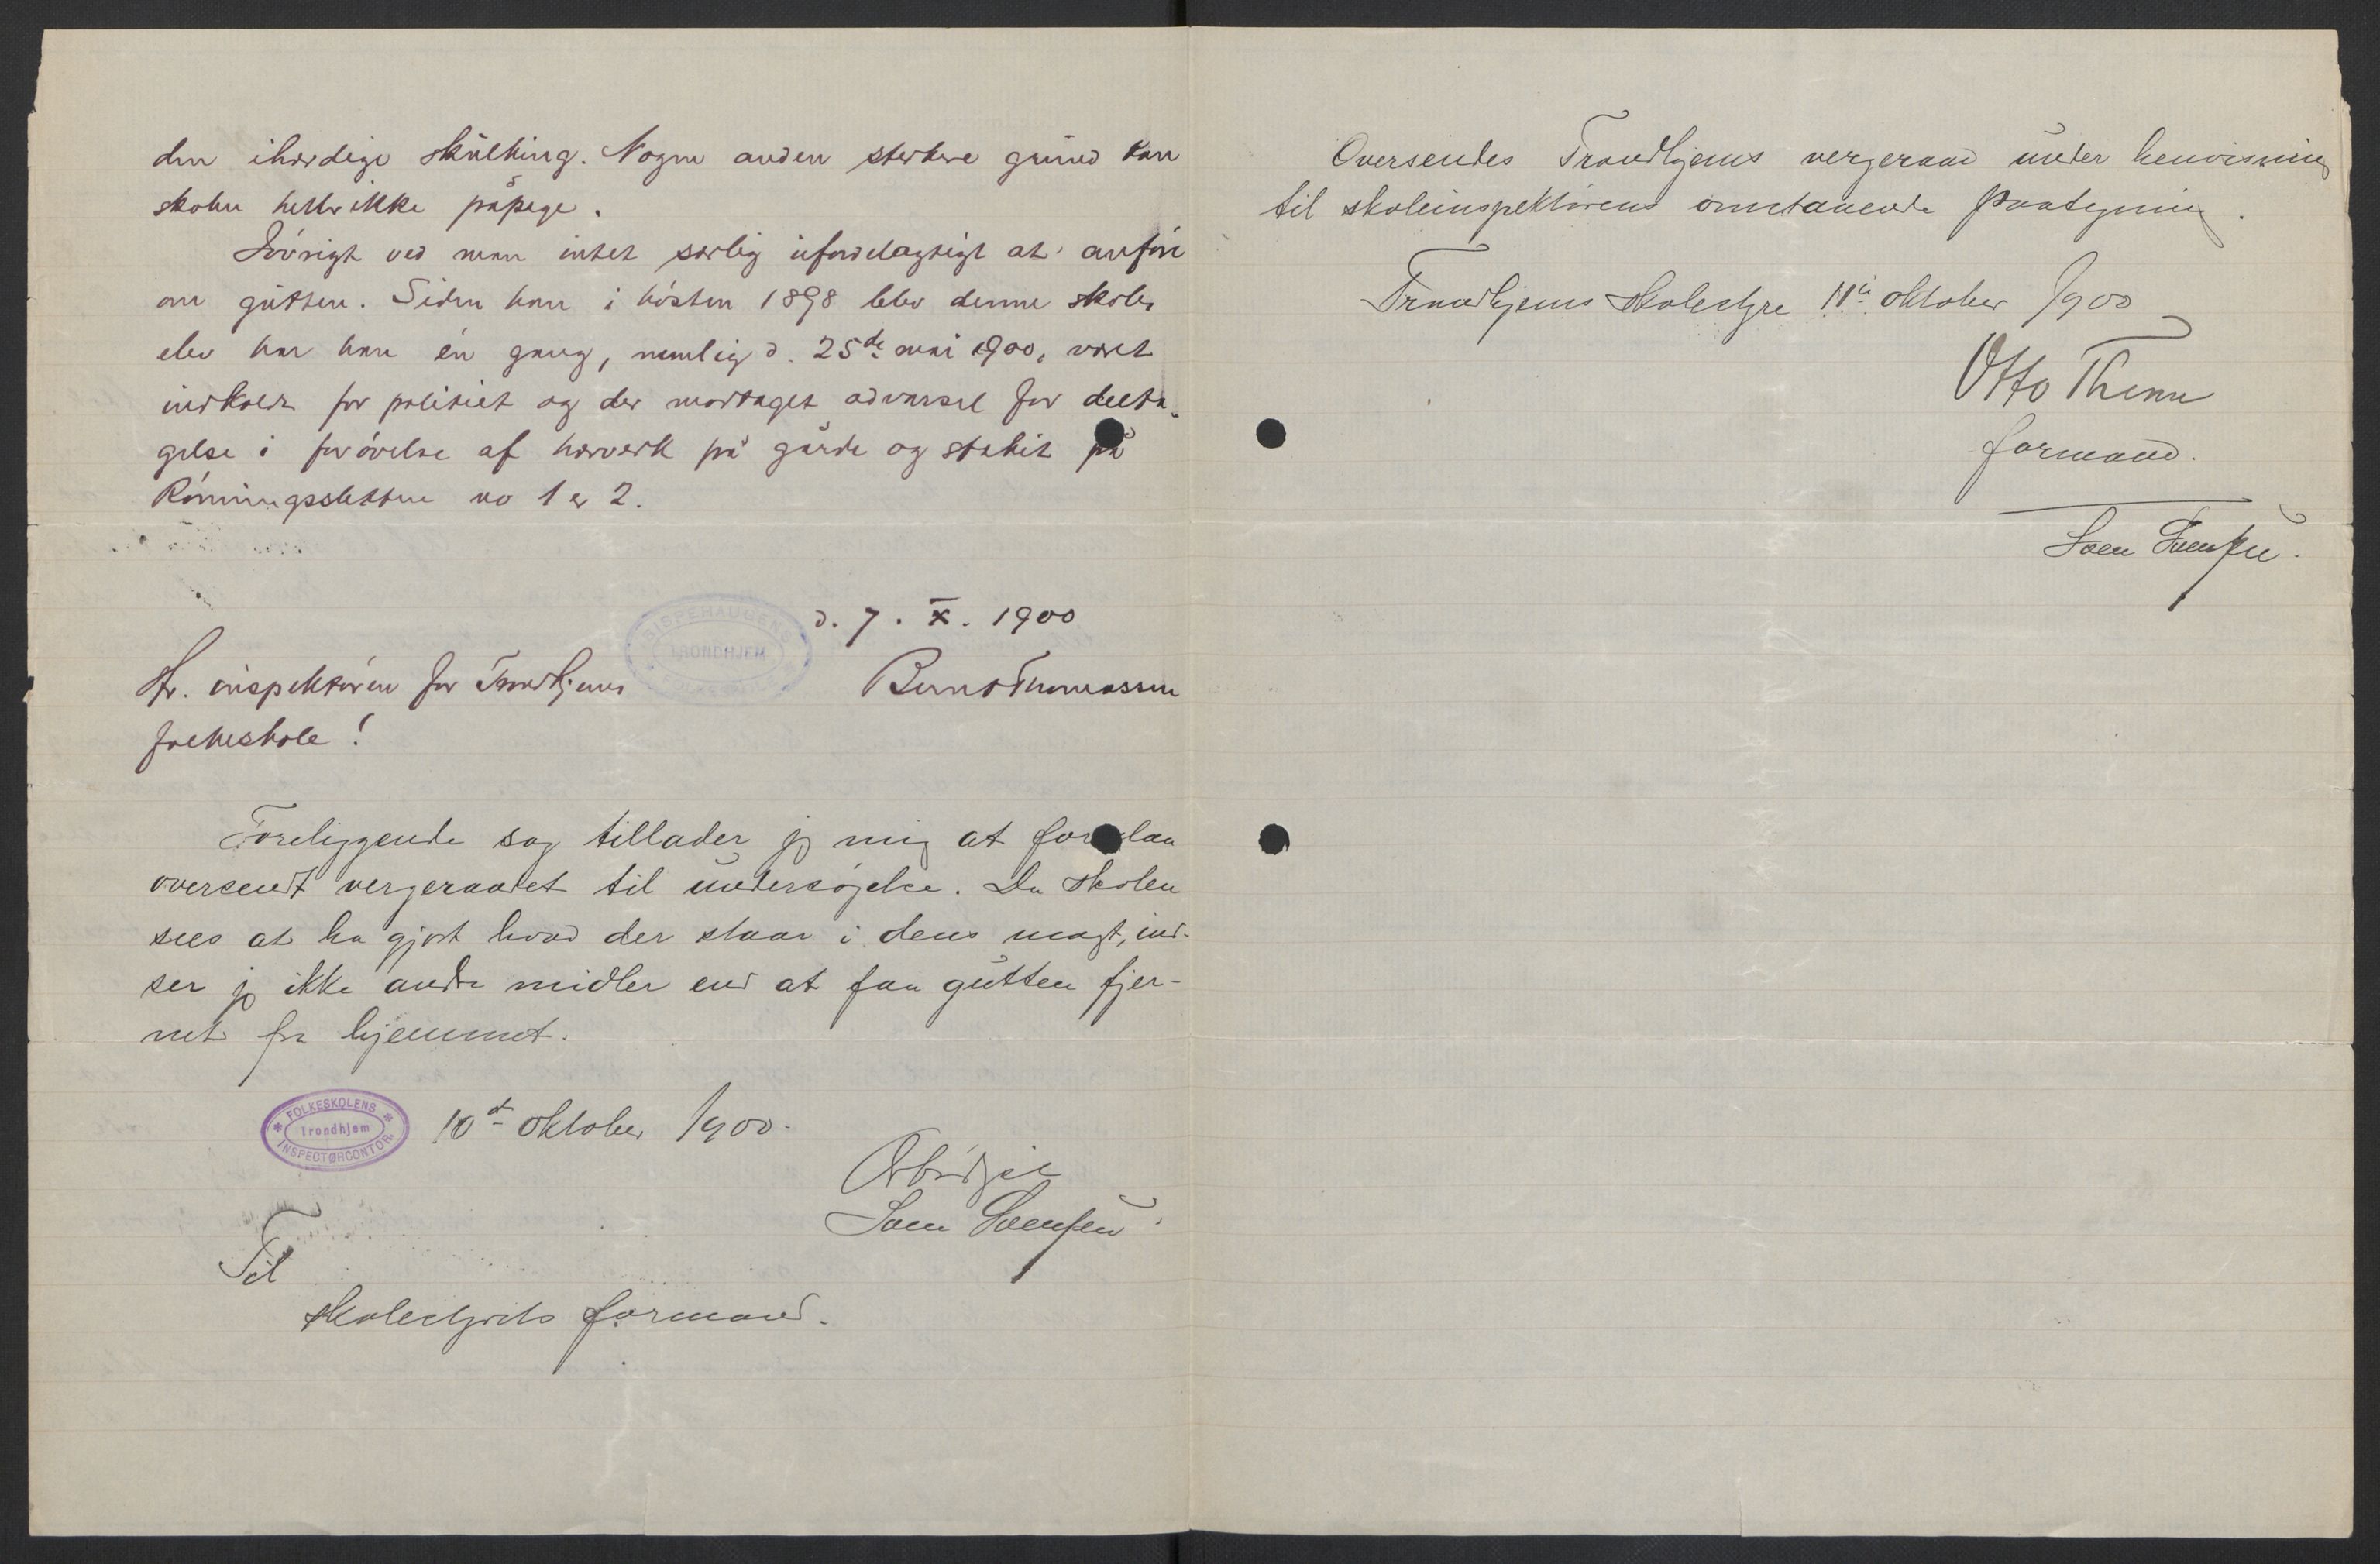 den ihærdige skulking. Nogen anden sterkere grund kan
skolen heller ikke påpege.
Iøvrigt ved man intet særlig ufordelagtigt at anføre
om gutten. Siden han i høsten 1898 blev denne skoles
elev har han én gang, nemlig d. 25de mai 1900, været
indkaldt for politiet og der modtaget advarsel for delta-
gelse i forøvelse af hærverk på gårde og stakit på
Rønningsslettene no 1 & 2.
d. 7. X. 1900
BISPEHAUGENS
TRONDHJEM
Hr. inspektøren for Trondhjems
Bernt Thomassen
folkeskole!
Foreliggende sag tillader jeg mig at foreslaa
oversendt vergeraadet til undersøgelse. Da skolen
sees at ha gjort hvad der staar i dens magt, ind-
ser jeg ikke andre midler end at faa gutten fjer-
net fra hjemmet.
FOLKESKOLENS
Trondhjem
INSPECTØRCONTOR
10de oktober 1900.
Ærbødigst
Til
skolestyrets formand.
Oversendes Trondhjems vergeraad under henvisning
til skoleinspektørens omstaaende paategning.
Trondhjems skolestyre 11te oktober 1900
Otto
formand.